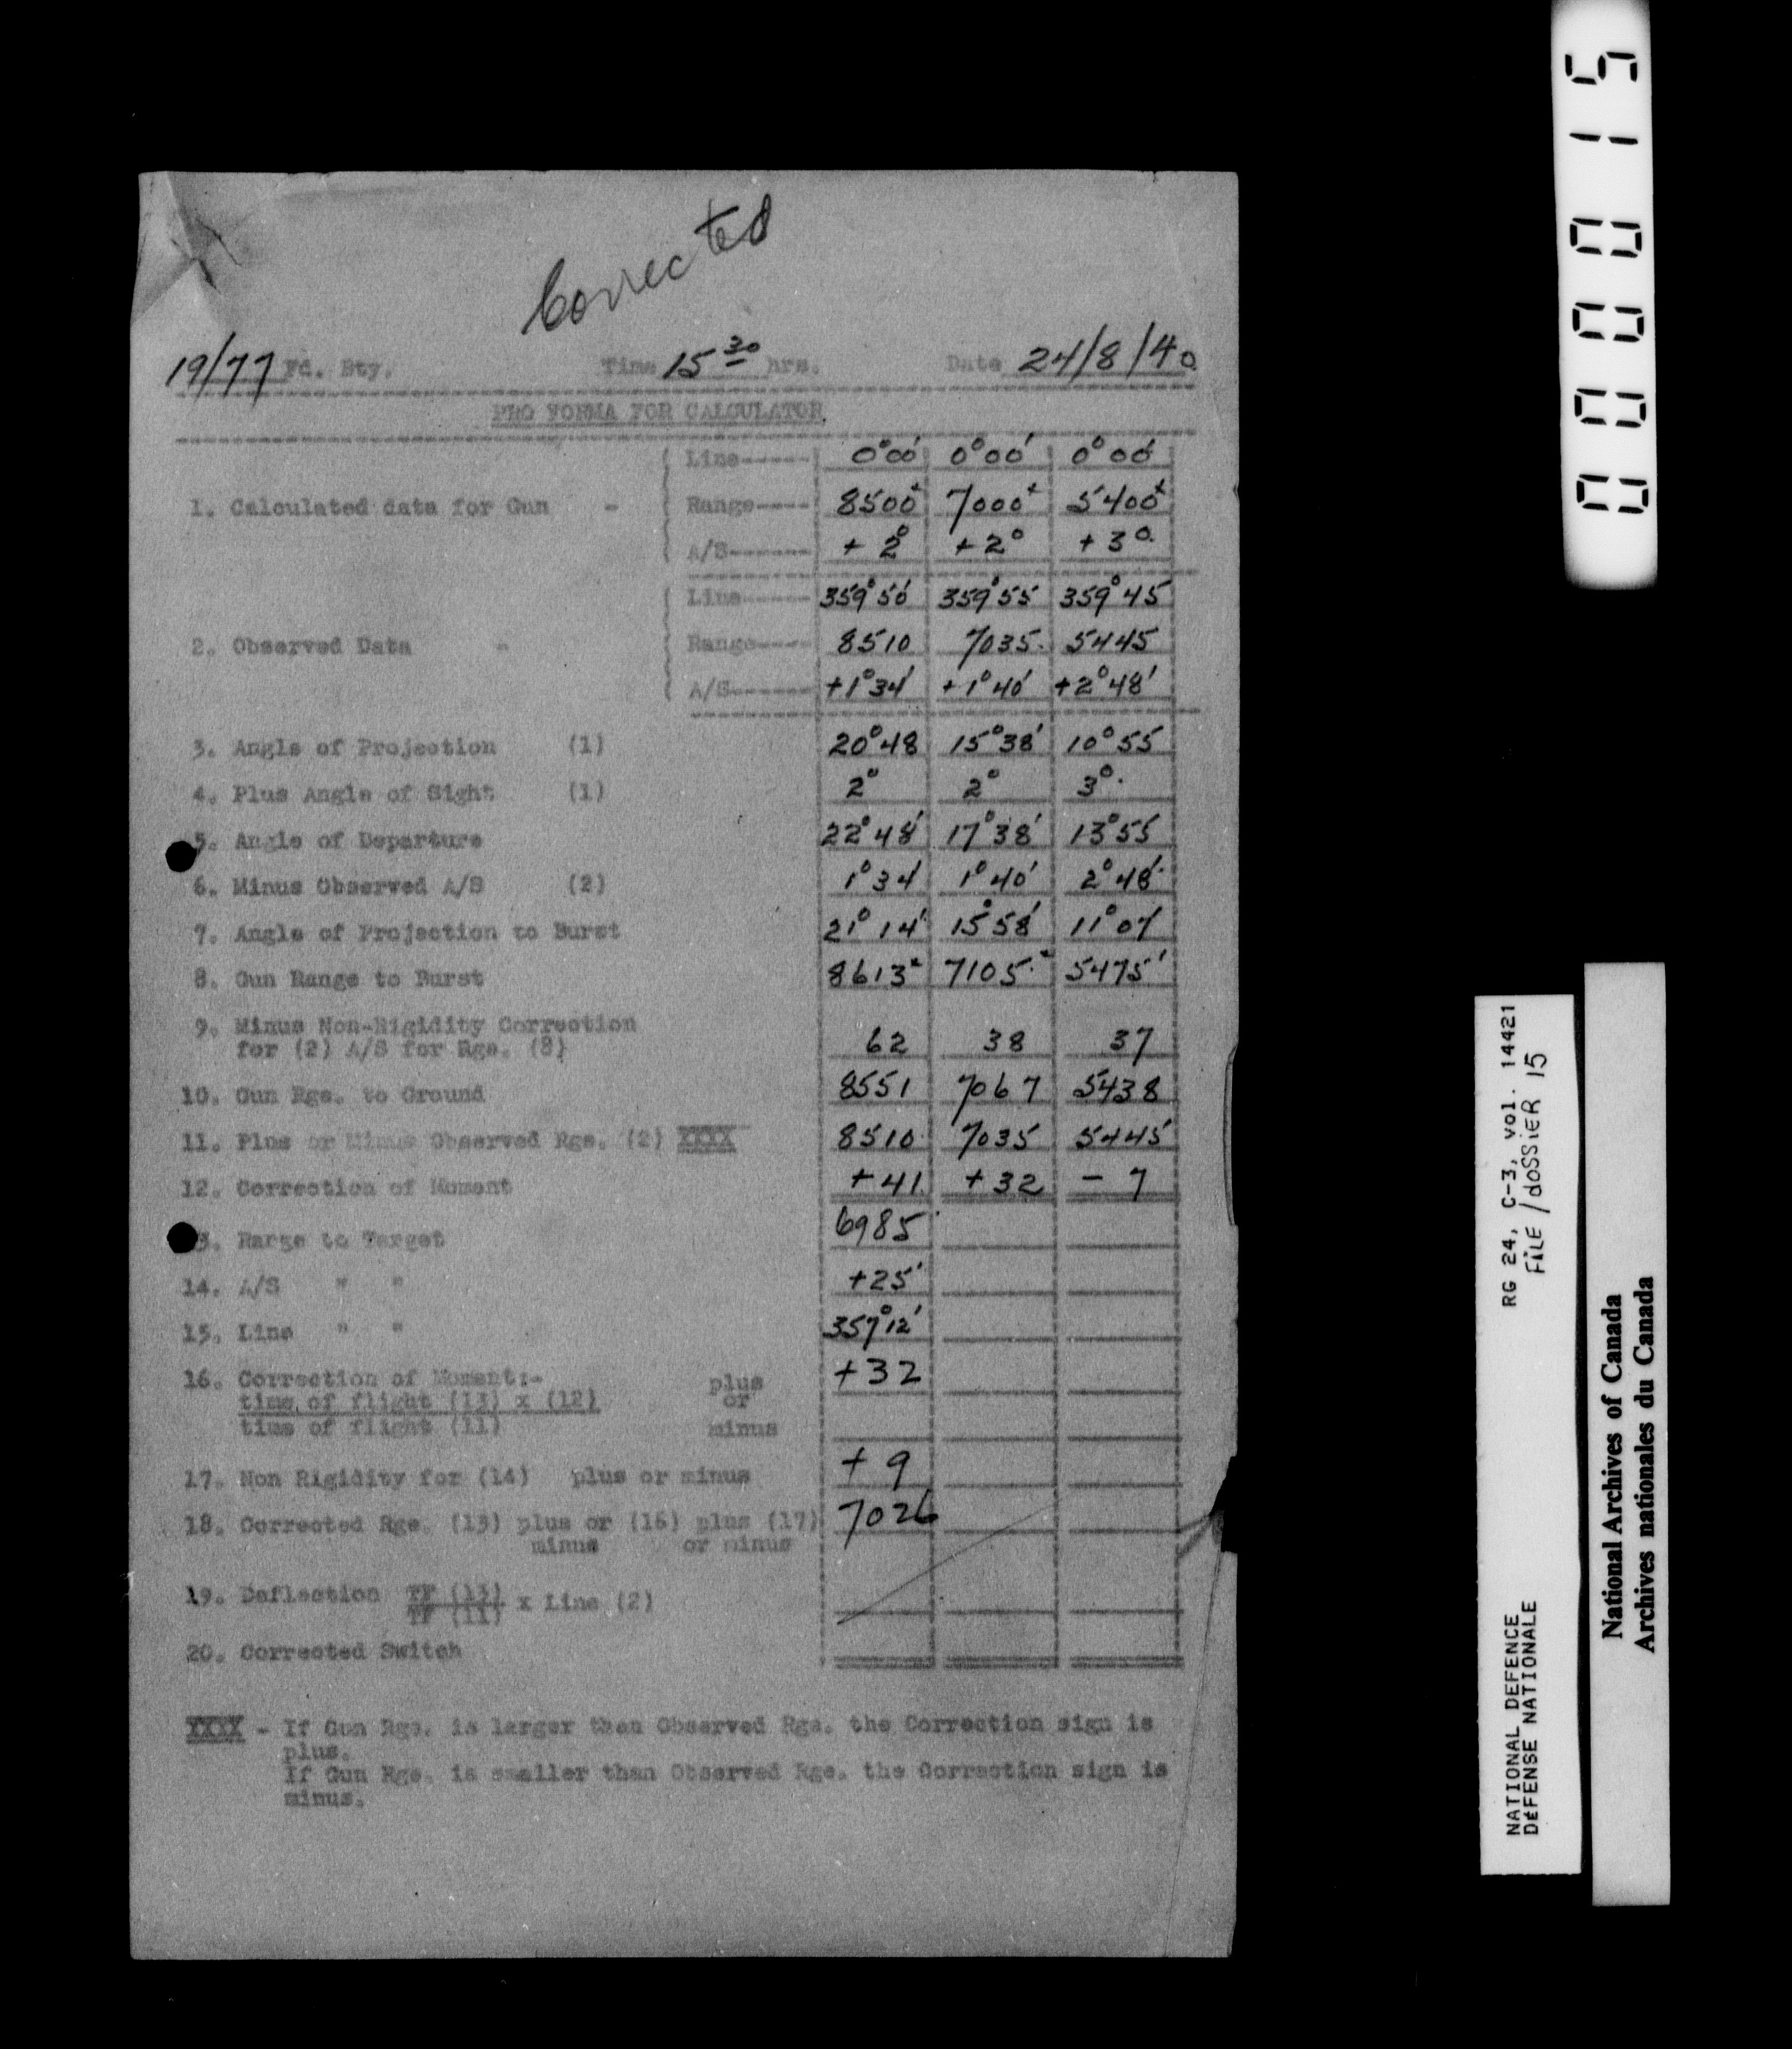 Corrected
19/77 Fd. Bty. Time 15 30 hrs. Date 24/8/40
PRO FORMA FOR CALCULATOR.
Line----- 0°00' 0°00' 0°00'
1. Calculated data for Gun - Range---- 8500x 7000x 5400x
A/S------- +2° +2° +3°
Line------ 359°50' 359°55 359°45
2. Observed Data - Range---- 8510 7035. 5445
A/S------- +1°34' +1°40' +2°48'
3. Angle of Projection (1) 20°48 15°38' 10°55
4. Plus Angle of Sight (1) 2° 2° 3°.
5. Angle of Departure 22°48' 17°38' 13°55
6. Minus Observed A/S (2) 1°34' 1°40' 2°48'
7. Angle of Projection to Burst 21°14' 15°58' 11°07'
8. Gun Range to Burst 8613x 7105x 5475'
9. Minus Non-Rigidity Correction
for (2) A/S for Rge. (8) 62 38 37
10. Gun Rge. to Ground 8551 7067 5438
11. Plus or Minus Observed Rge. (2) XXXX 8510 7035 5445
12. Correction of Moment +41 +32 - 7
13. Range to Target 6985
14. A/S " " +25'
15. Line " " 357°12'
16. Correction of Moment:- plus +32
time of flight (13) x (12) or
time of flight (11) minus
17. Non Rigidity for (14) plus or minus + 9
18. Corrected Rge. (13) plus or (16) plus (17) 7026
minus or minus
19. Deflection TF (13) x Line (2)
TF (11)
20. Corrected Switch
XXXX - If Gun Rge. is larger than Observed Rge. the Correction sign is
plus.
If Gun Rge. is smaller than Observed Rge. the Correction sign is
minus.
000015
RG 24, C-3, vol. 14421
FILE/dOSSiER 15
NATIONAL DEFENCE
DÉFENSE NATIONALE
National Archives of Canada
Archives nationales du Canada